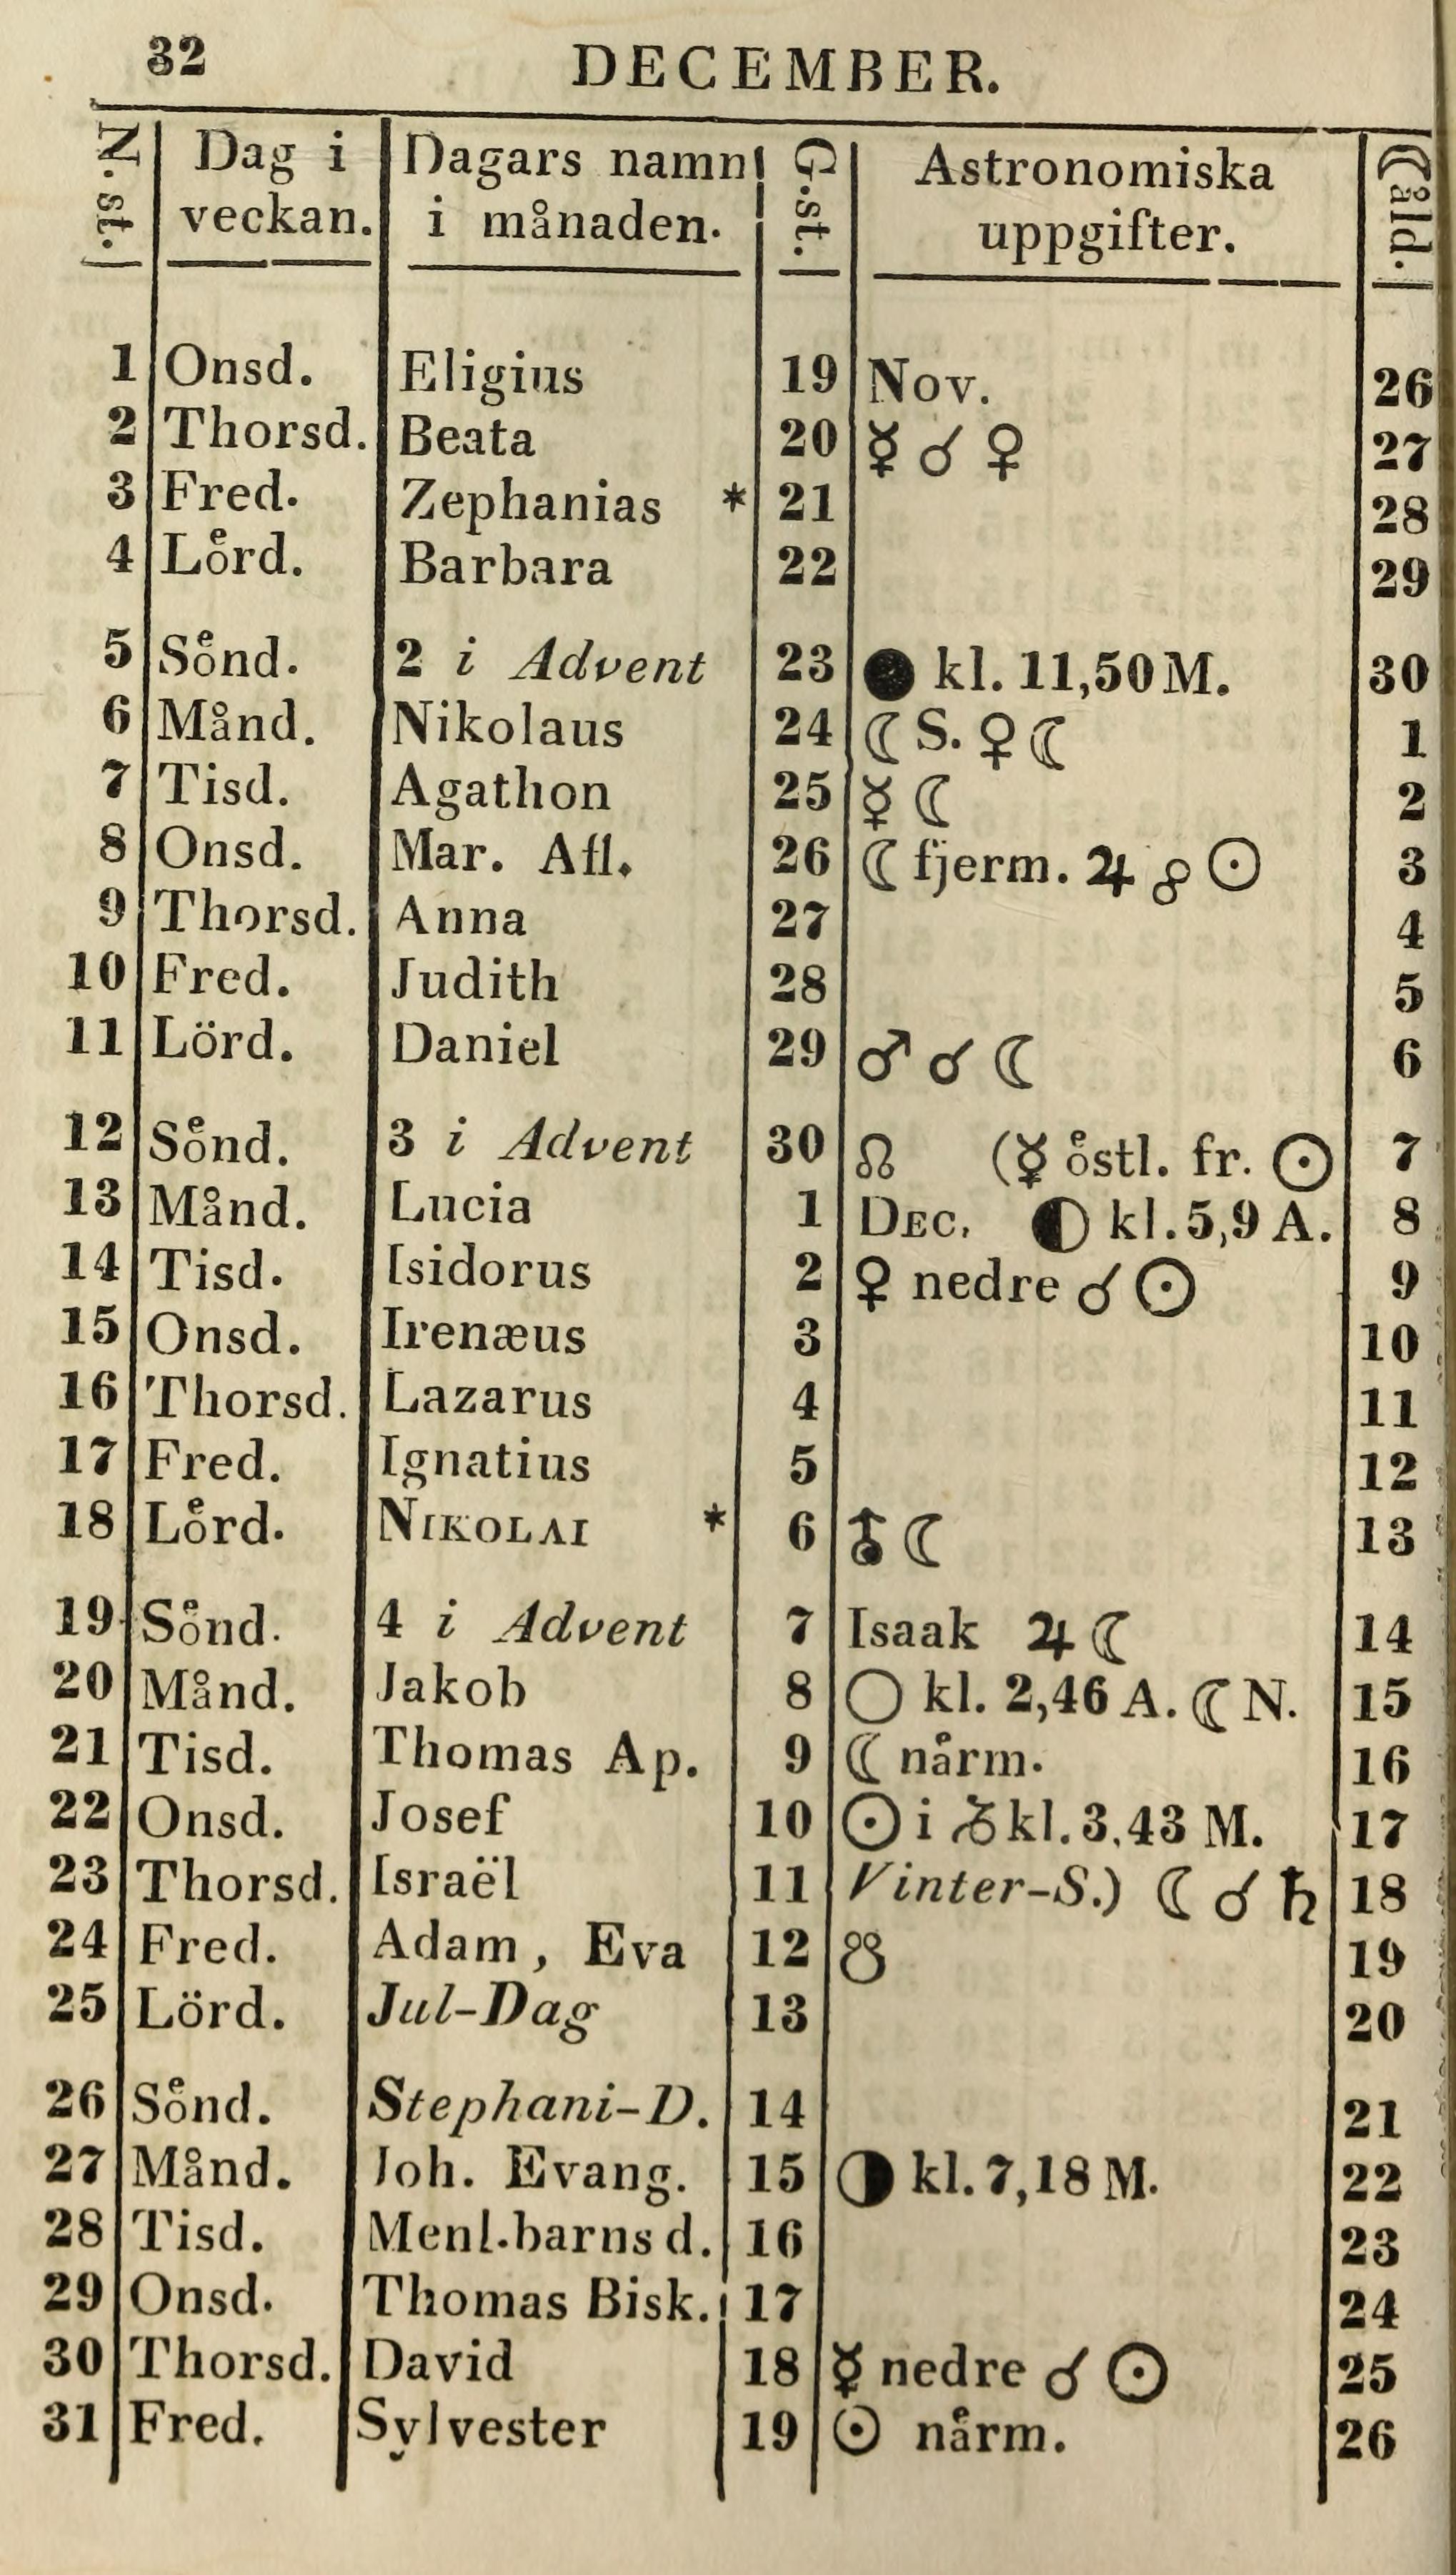 32 DECEMBER.
N. st. Dag i veckan. Dagars namn i månaden. G. st. Astronomiska uppgifter. ☾åld.
1 Onsd. Eligius 19 Nov. 26
2 Thorsd. Beata 20 ☿ ☌ ♀ 27
3 Fred. Zephanias * 21 28
4 Lo&#x364;rd. Barbara 22 29
5 Soͤnd. 2 i Advent 23 ● kl. 11,50 M. 30
6 Månd. Nikolaus 24 ☾ S. ♀ ☾ 1
7 Tisd. Agathon 25 ☿ ☾ 2
8 Onsd. Mar. Afl. 26 ☾ fjerm. ♃ ☍ ☉ 3
9 Thorsd. Anna 27 4
10 Fred. Judith 28 5
11 Lörd. Daniel 29 ♂ ☌ ☾ 6
12 Soͤnd. 3 i Advent 30 ☊ (☿ oͤstl. fr. ☉ 7
13 Månd. Lucia 1 Dec. ◐ kl. 5,9 A. 8
14 Tisd. Isidorus 2 ♀ nedre ☌ ☉ 9
15 Onsd. Irenæus 3 10
16 Thorsd. Lazarus 4 11
17 Fred. Ignatius 5 12
18 Loͤrd. Nikolai * 6 ⛢ ☾ 13
19 Soͤnd. 4 i Advent 7 Isaak ♃ ☾ 14
20 Månd. Jakob 8 ○ kl. 2,46 A. ☾ N. 15
21 Tisd. Thomas Ap. 9 ☾ naͤrm. 16
22 Onsd. Josef 10 ☉ i ♑ kl. 3,43 M. 17
23 Thorsd. Israël 11 Vinter-S.) ☾ ☌ ♄ 18
24 Fred. Adam, Eva 12 ☋ 19
25 Lörd. Jul-Dag 13 20
26 Soͤnd. Stephani-D. 14 21
27 Månd. Joh. Evang. 15 ◑ kl. 7,18 M. 22
28 Tisd. Menl. barns d. 16 23
29 Onsd. Thomas Bisk. 17 24
30 Thorsd. David 18 ☿ nedre ☌ ☉ 25
31 Fred. Sylvester 19 ☉ naͤrm. 26